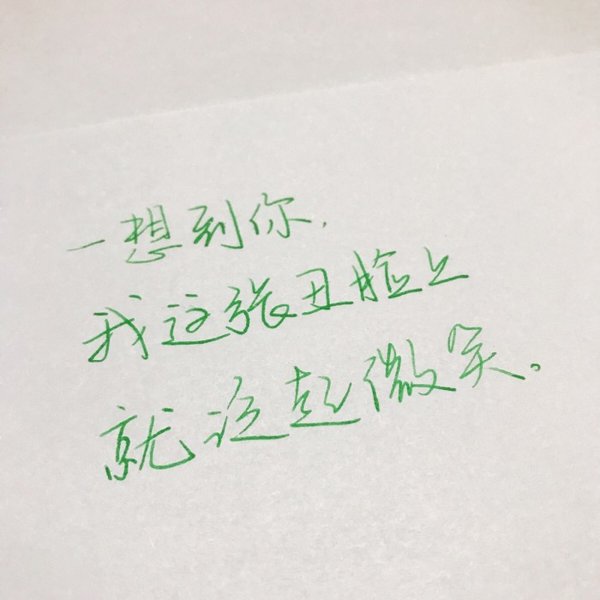 一想到你,
我这张丑脸上
就泛起微笑。